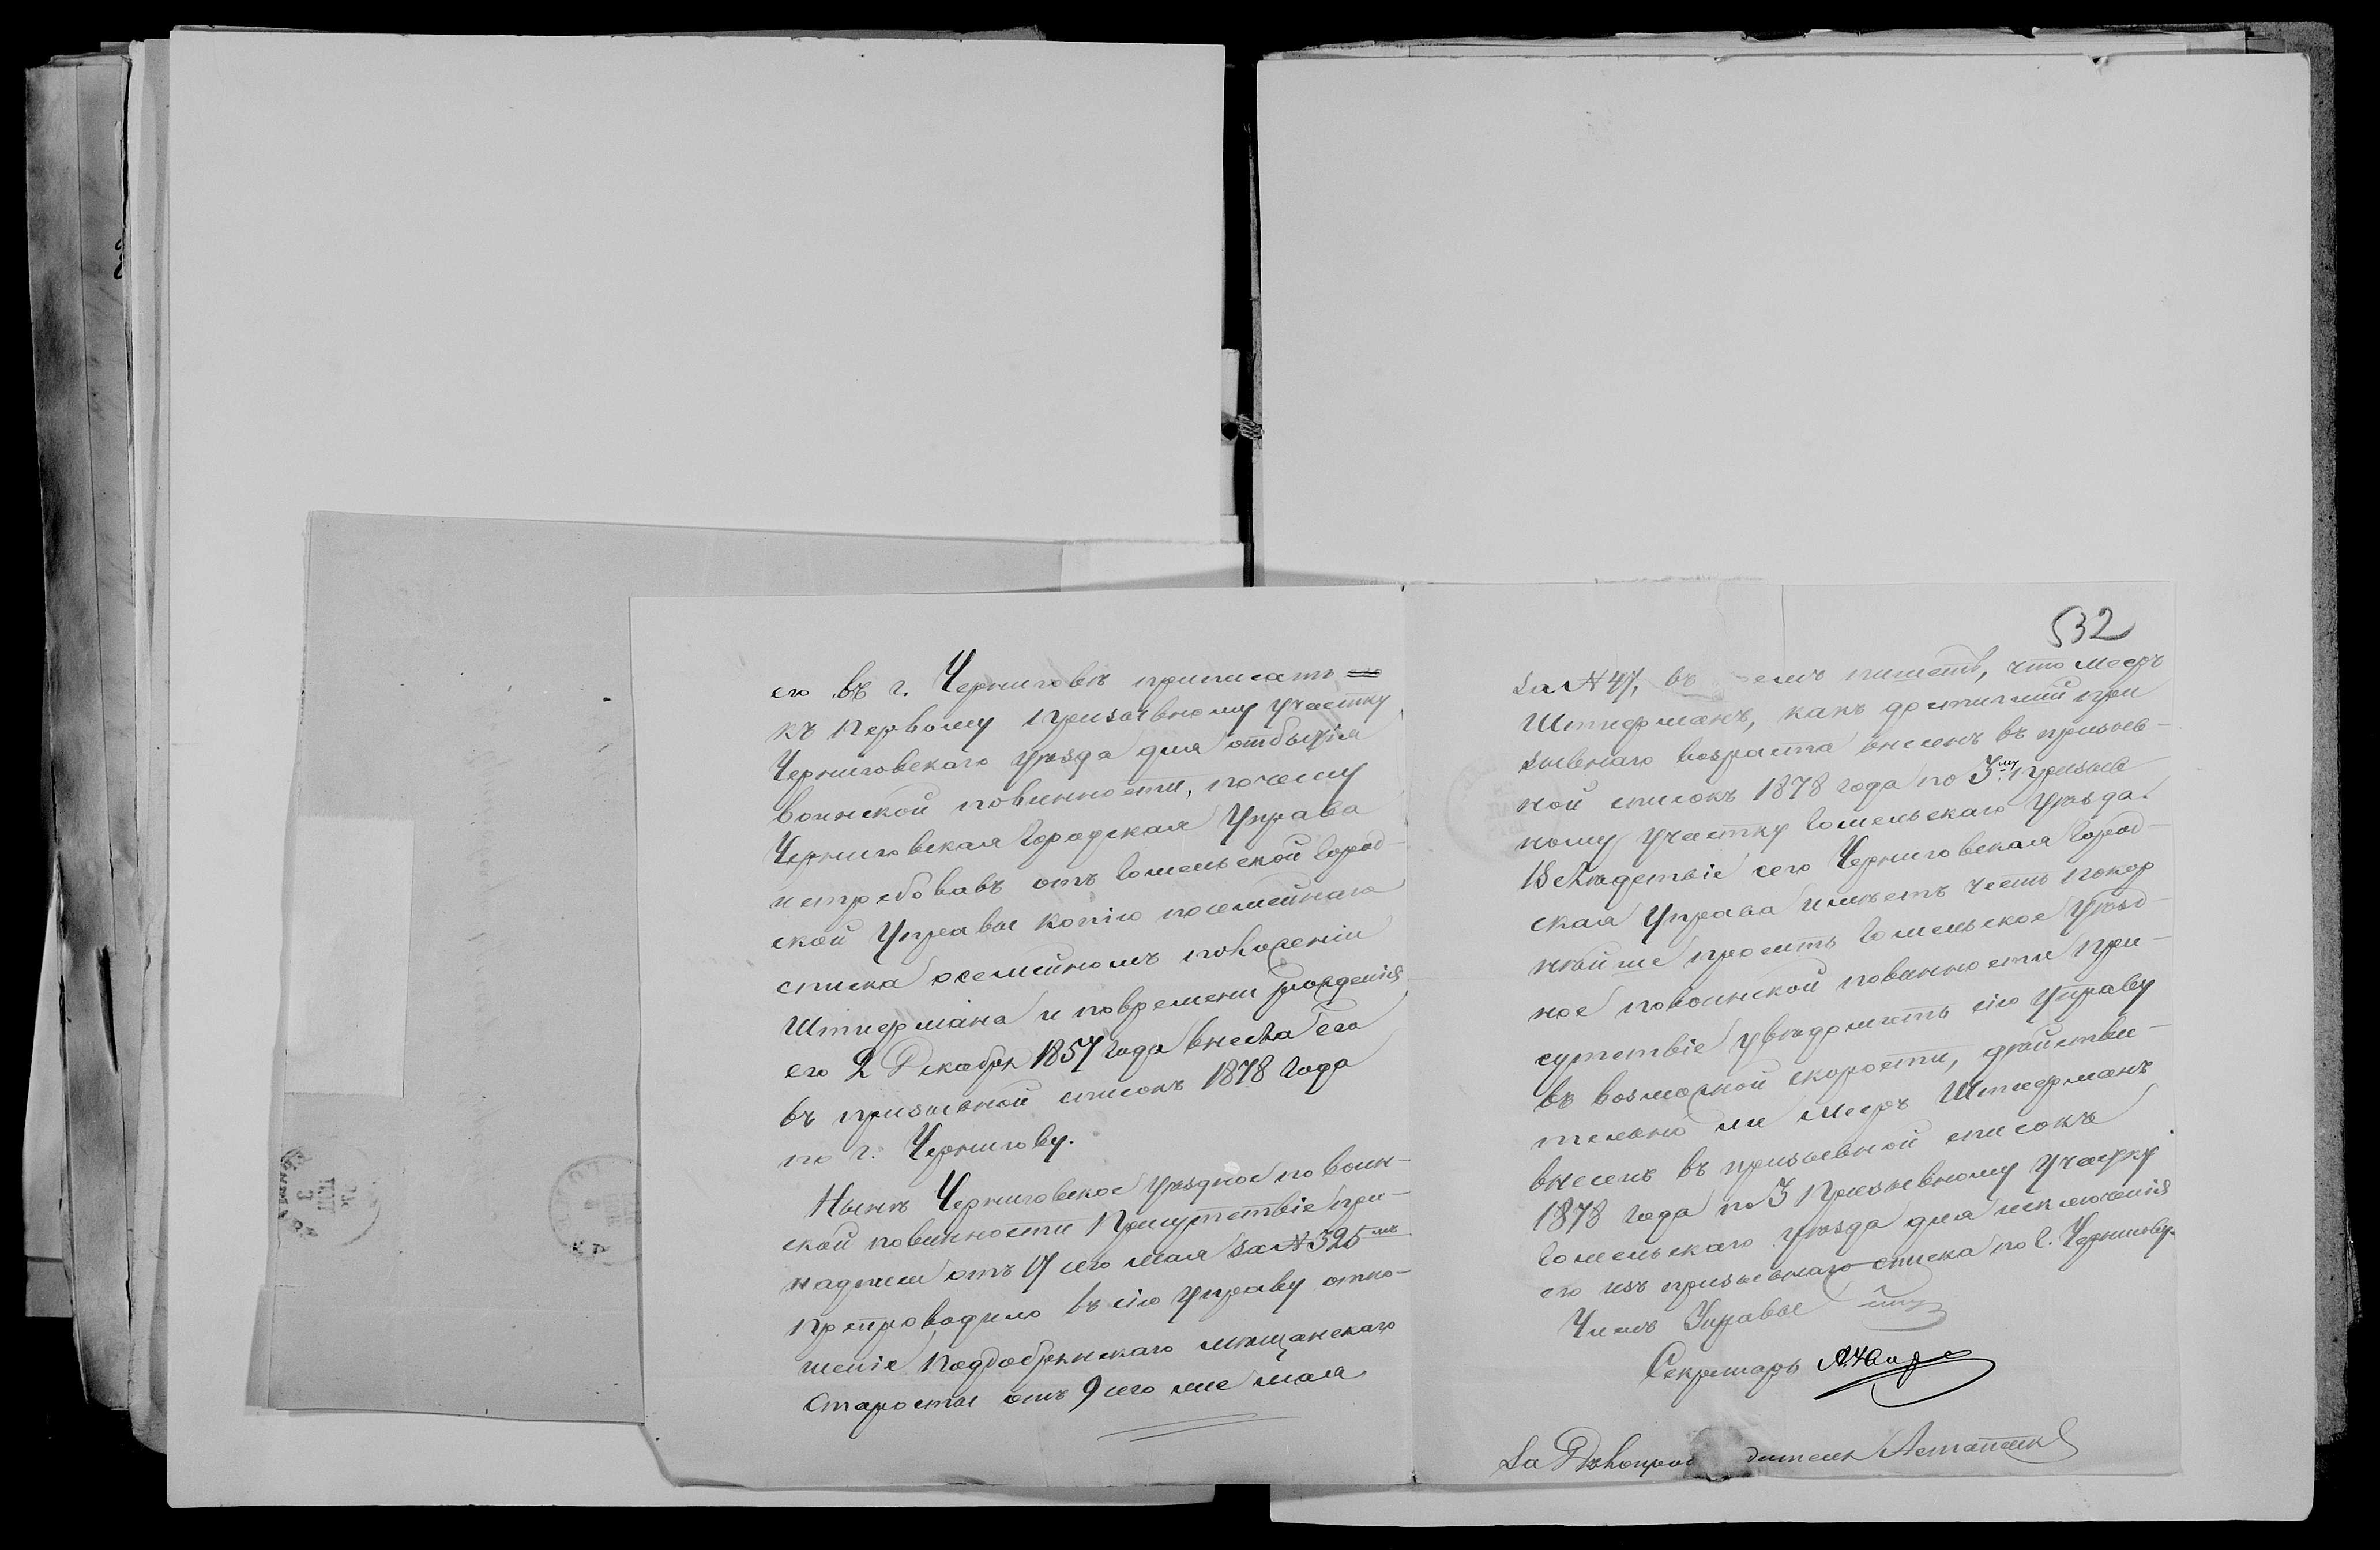 его въ г. Черниговѣ приписать
къ Первому призывному участку
Черниговскаго уѣзда для отбытія
воинской повинности, почему
Черниговская Городская Управа
истребовавъ отъ Гомельской Город-
ской Управы копію посемейнаго
списка о семейномъ положеніи
Штифмана и по времени рожденія
его 2 Декабря 1857 года внесла его
въ призывной списокъ 1878 года
по г. Чернигову.
Нынѣ Черниговское уѣздное по воин-
ской повинности Присутствіе при
надписи отъ 17 сего мая за № 325
препроводило въ сію Управу отно-
шеніе Поддобрянскаго мѣщанскаго
Старосты отъ 9 сего же мая
532
за № 47, въ пишетъ, что Мееръ
Штифманъ, какъ достигшій при
зывнаго возраста внесенъ въ призыв-
ной списокъ 1878 года по 3му призыв
ному участку Гомельскаго уѣзда.
Вслѣдствіе сего Черниговская Город-
ская Управа имѣетъ честь покор
нѣйше просить Гомельское уѣзд-
ное по воинской повинности При-
сутствіе увѣдомить сію Управу
въ возможной скорости, дѣйстви-
тельно ли Мееръ Штифманъ
внесенъ въ призывной списокъ
1878 года по 3 призывному участку
Гомельскаго уѣзда для исключенія
его изъ призывнаго списка по г. Чернигову.
Членъ Управы
Секретарь
За Дѣлопроизводителя